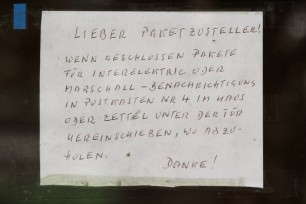 LIEBER PAKETZUSTELLER!
WENN GESCHLOSSEN PAKETE
FÜR INTERELEKTRIC ODER
MARSCHALL - BENACHRICHTIGUNG
IN POSTKASTEN NR 4 IM HAUS
ODER ZETTEL UNTER DER TÜR
HEREINSCHIEBEN, WO ABZU-
HOLEN.
DANKE!